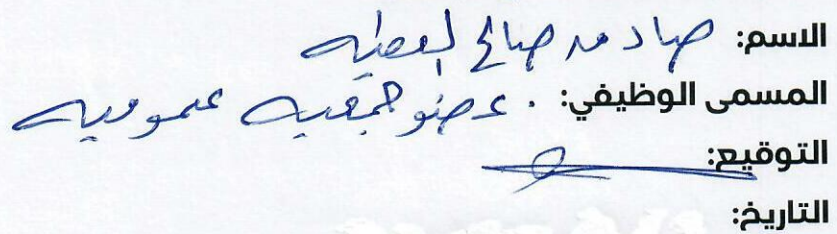 الاسم: صالح
المسمى الوظيفي: عضو جمعية عمومية
التوقيع:
التاريخ: